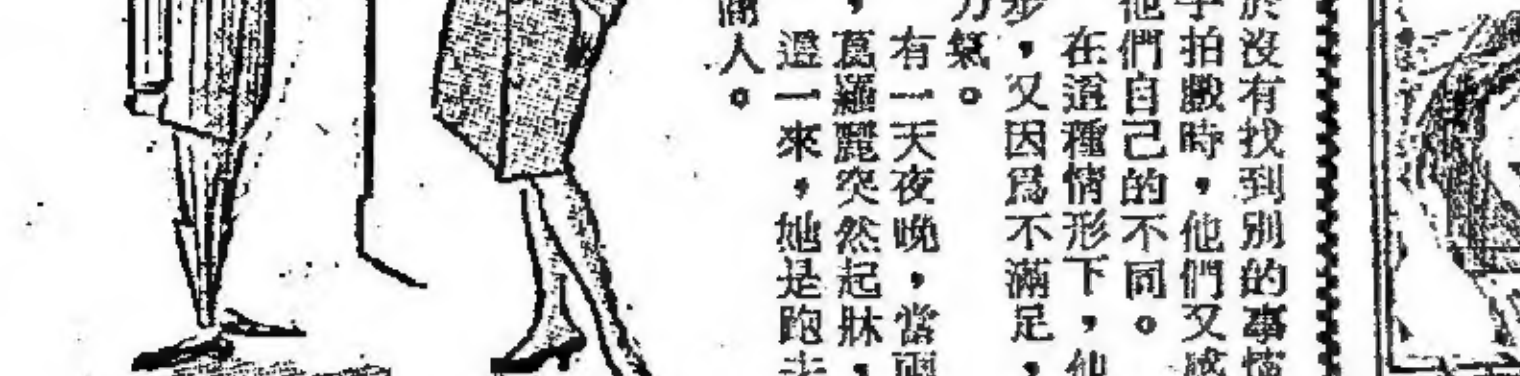 於沒有找到別的事情
拍戲時，他們又感
他們自己的不同。
在這種情形下，他
步，又因爲不滿足，
力氣。
有一天夜晚，當兩
，萬羅麗突然起牀，
這一來，她是跑去
商人。